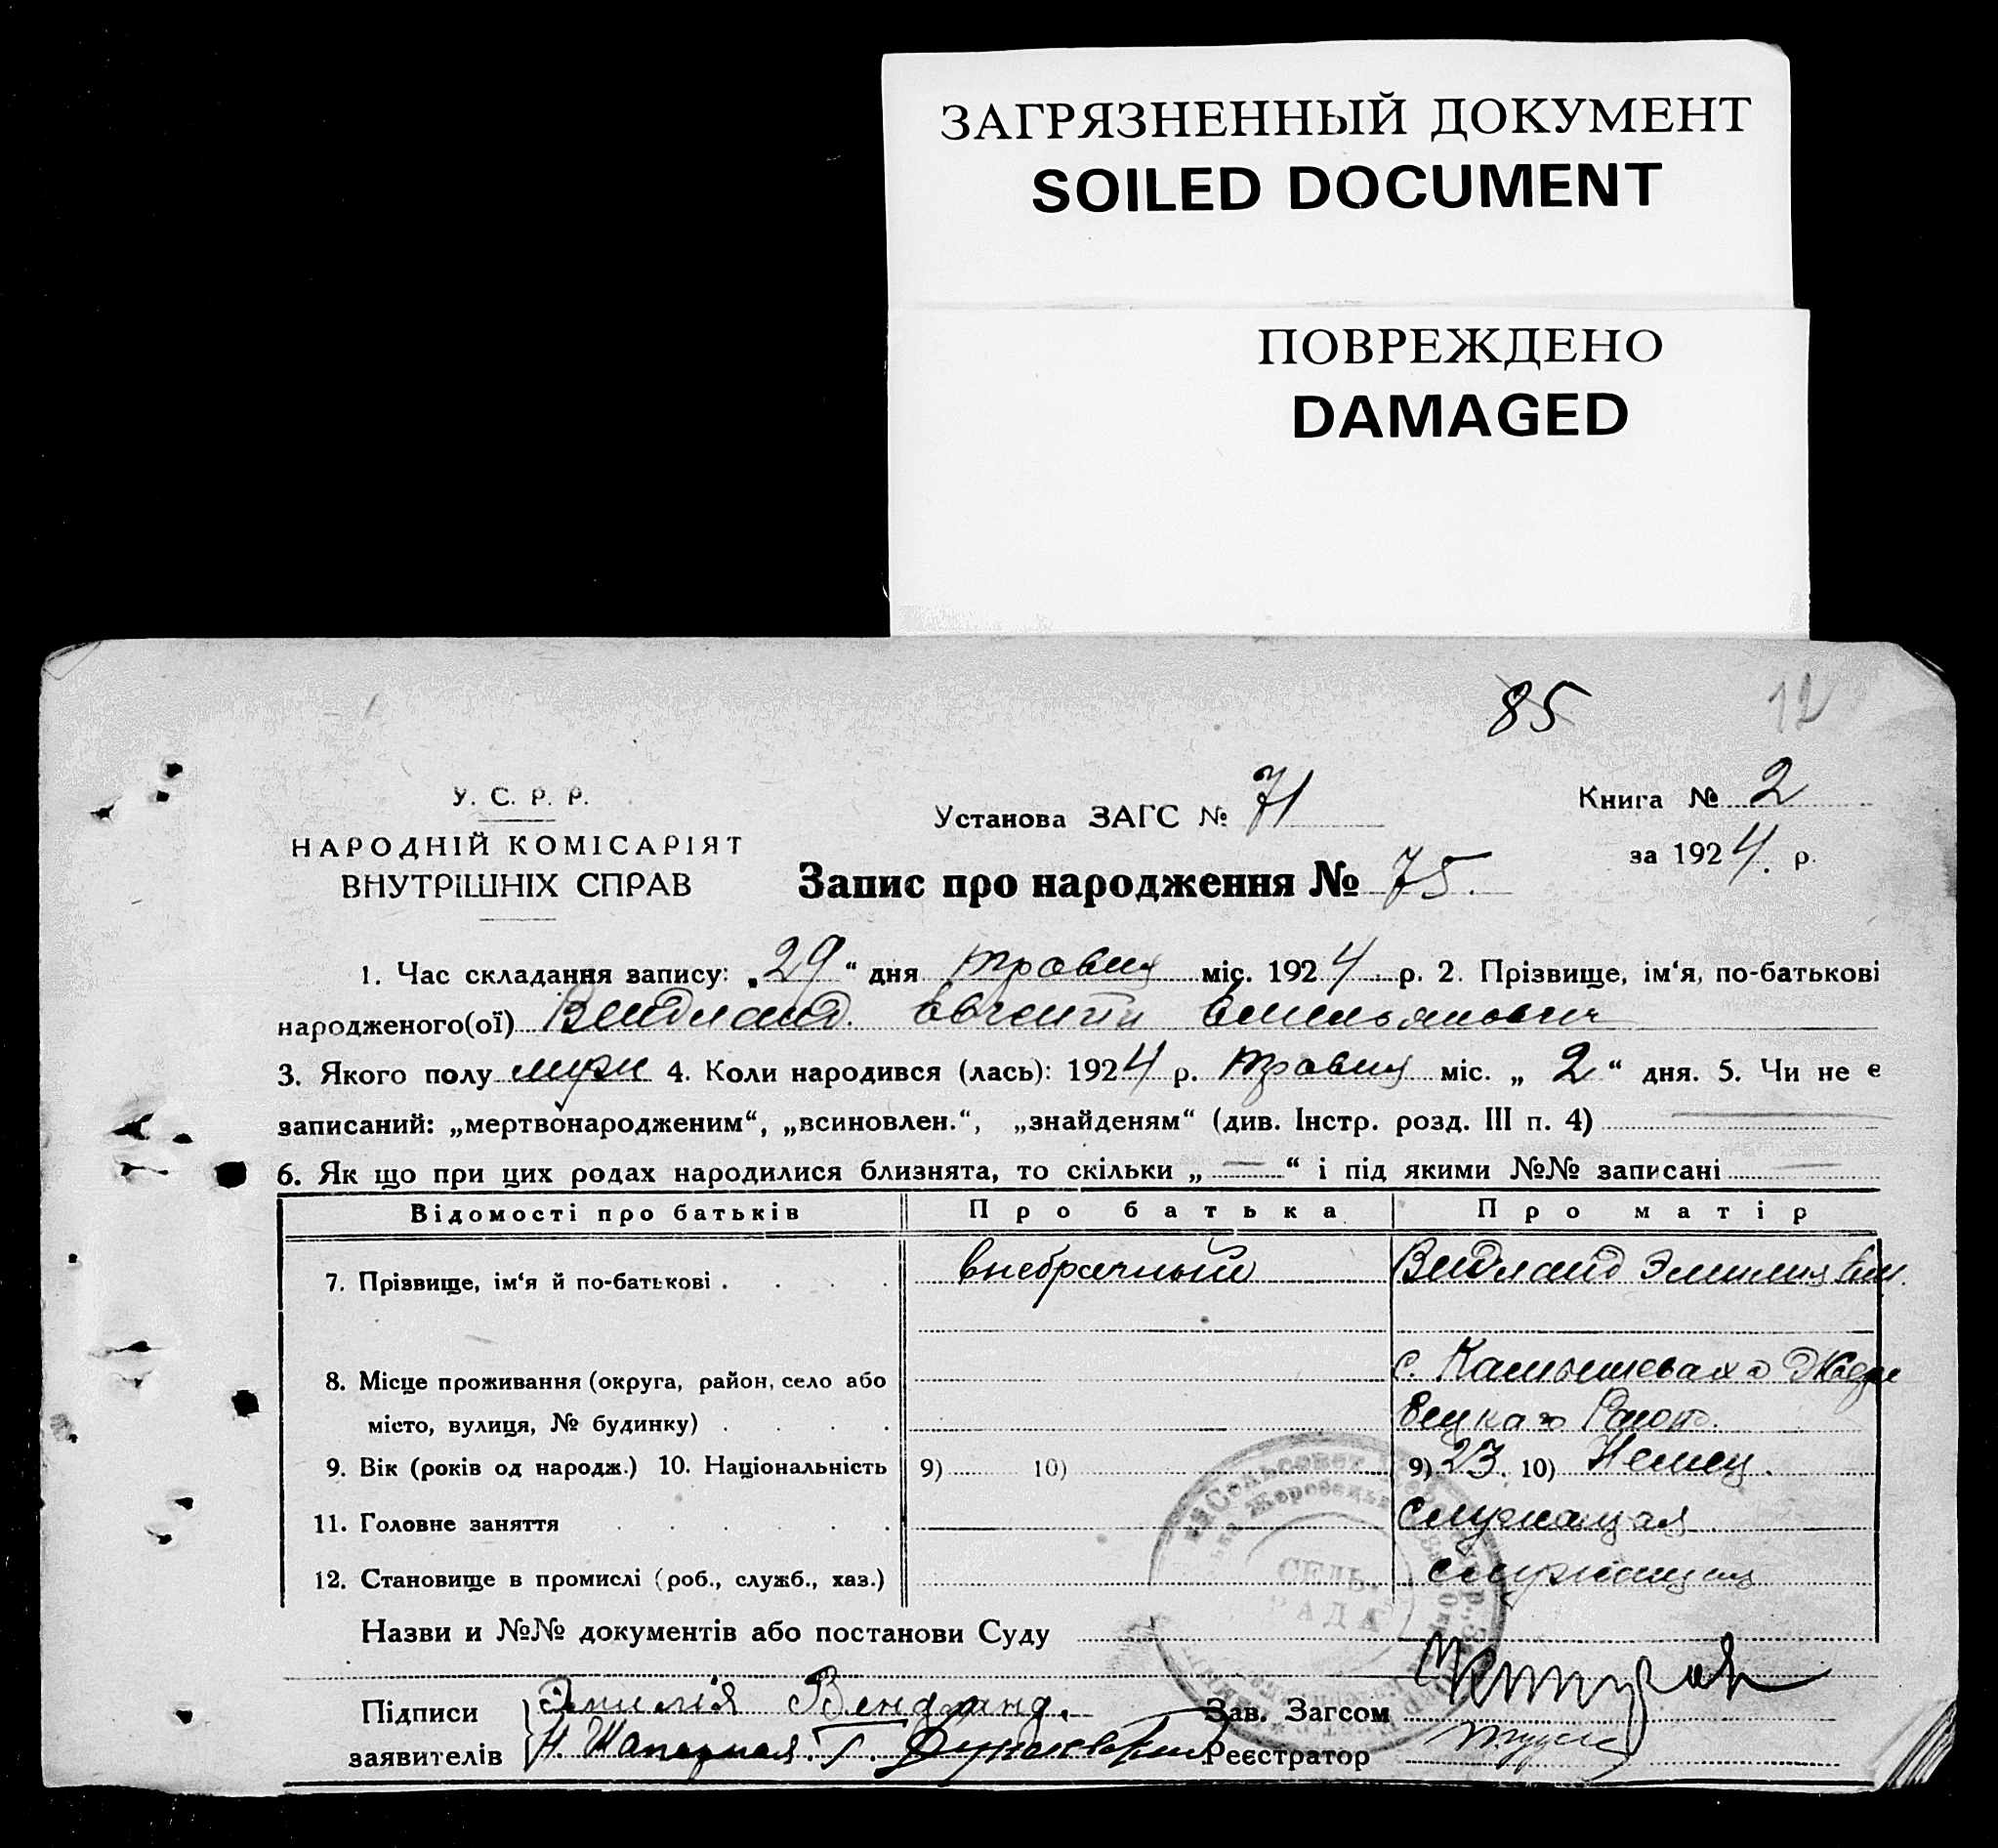 ЗАГРЯЗНЕННЫЙ ДОКУМЕНТ
SOILED DOCUMENT
ПОВРЕЖДЕНО
DAMAGED
85 12
У. С. Р. Р.
НАРОДНІЙ КОМІСАРІЯТ
ВНУТРІШНІХ СПРАВ
Установа ЗАГС № 71
Книга № 2
за 1924. р.
Запис про народження № 75.
1. Час складання запису: „29“ дня травня міс. 1924 р. 2. Прізвище, ім‘я, по-батькові
народженого(ої) Вендланд Евгений Емельянович
3. Якого полу муж 4. Коли народився (лась): 1924 р. травня міс. „2“ дня. 5. Чи не є
записаний: „мертвонародженим“, „всиновлен.“, „знайденям“ (див. Інстр. розд. III п. 4)
6. Як що при цих родах народилися близнята, то скільки „—“ і під якими №№ записані —
Відомості про батьків Про батька Про матір
7. Прізвище, ім‘я й по-батькові . . . . внебрачный Вендланд Эмилия
8. Місце проживання (округа, район, село або с. Камышеваха
місто, вулиця, № будинку) . . . .
9. Вік (років од народж.) 10. Національність 9) 10) 9) 23. 10) Немец.
11. Головне заняття . . . . . служащая
12. Становище в промислі (роб., служб., хаз.) служащая
СЕЛЬ-
РАДА
Назви и №№ документів або постанови Суду
Підписи Эмилія Вендланд. Зав. Загсом
заявителів Н. Шапарная. Г. Реєстратор